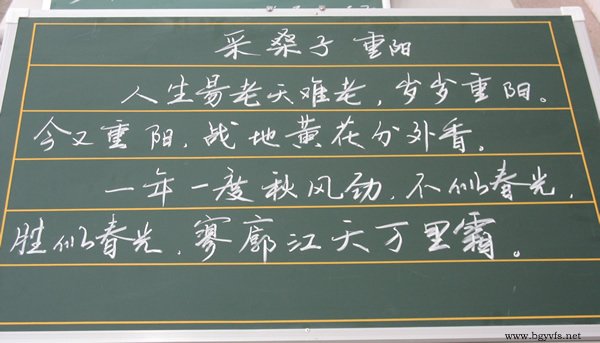 采桑子 重阳
人生易老天难老，岁岁重阳。
今又重阳，战地黄花分外香。
一年一度秋风劲，不似春光，
胜似春光，寥廓江天万里霜。
www.bgyvfs.net